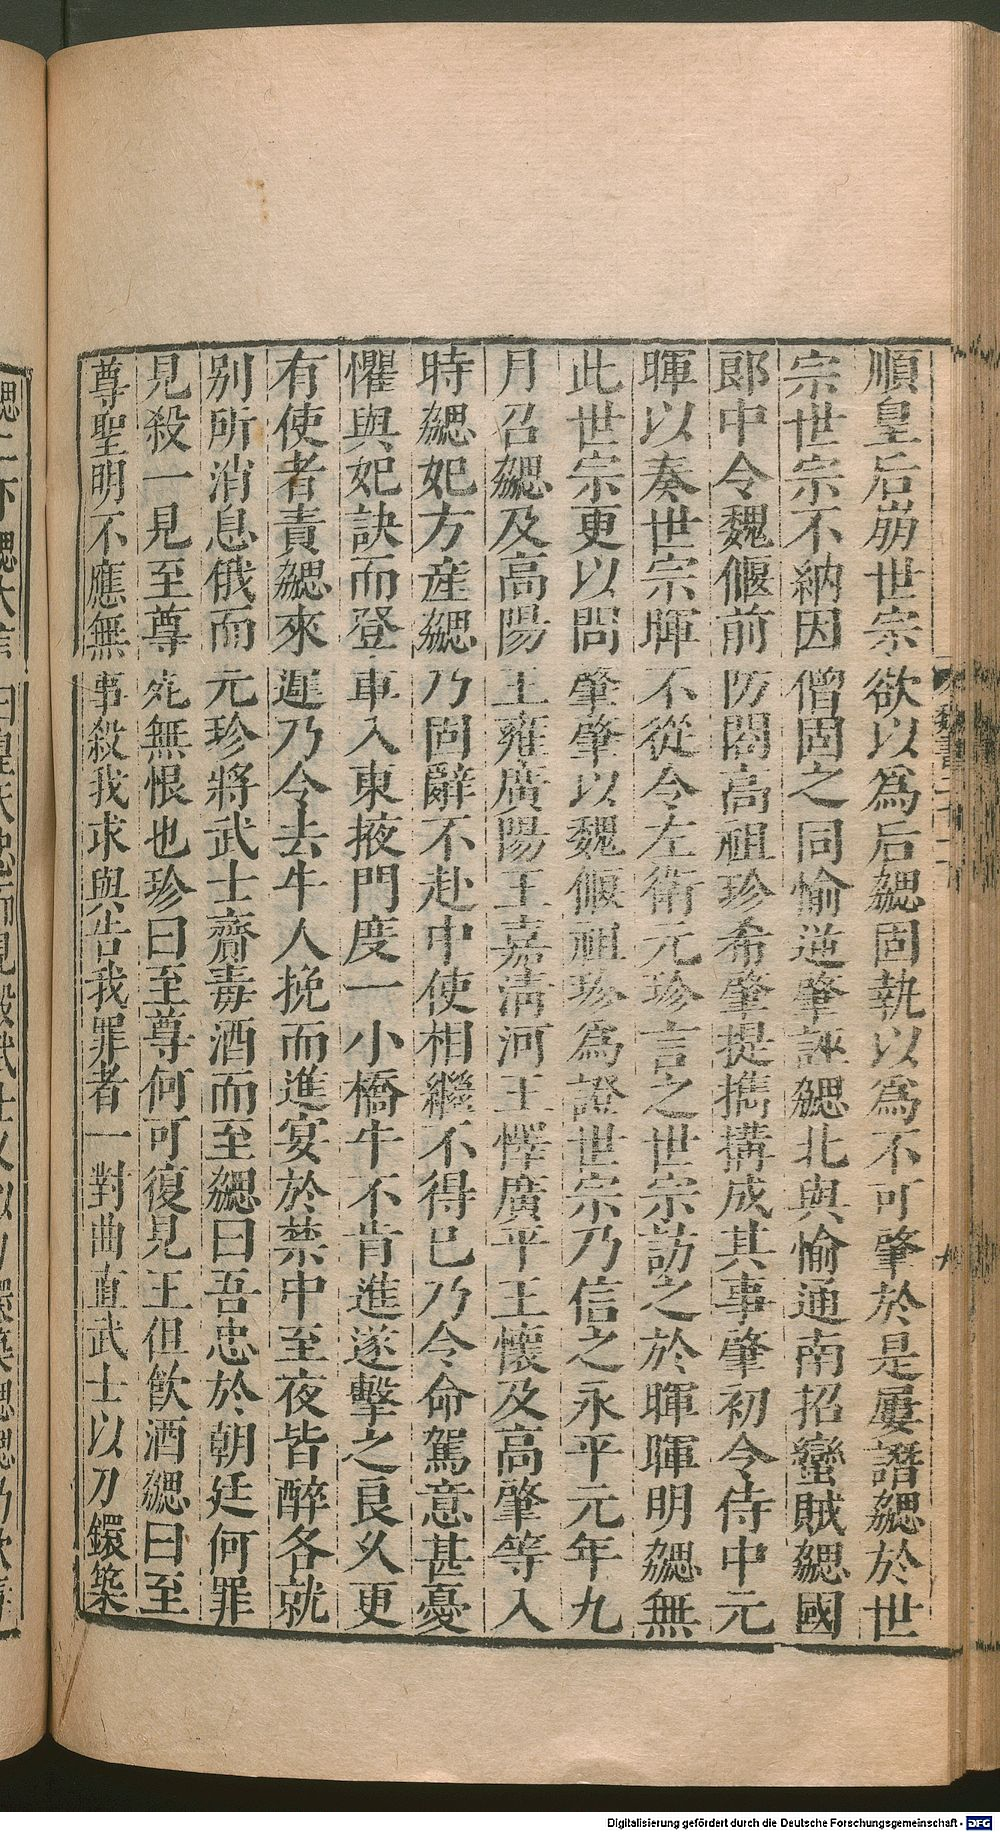 順皇后崩世宗欲以爲后勰固執以爲不可肇於是屢譖勰於世
宗世宗不納因僧固之同愉逆肇誣勰北與愉通南招蠻賊勰國
郎中令魏偃前防閤高祖珍希肇提攜搆成其事肇初令侍中元
暉以奏世宗暉不從令左衛元珍言之世宗訪之於暉暉明勰無
此世宗更以問肇肇以魏偃祖珍爲證世宗乃信之永平元年九
月召勰及高陽王雍廣陽王嘉淸河王懌廣平王懷及高肇等入
時勰妃方産勰乃固辭不赴中使相繼不得已乃令命駕意甚憂
懼與妃訣而登車入東掖門度一小橋牛不肯進遂擊之良久更
有使者責勰來遲乃令去牛人挽而進宴於禁中至夜皆醉各就
别所消息俄而元珍將武士齎毒酒而至勰曰吾忠於朝廷何罪
見殺一見至尊死無恨也珍曰至尊何可復見王但飮酒勰曰至
尊聖明不應無事殺我求與告我罪者一對曲直武士以刀鐶築
Digitalisierung gefördert durch die Deutsche Forschungsgemeinschaft - DFG